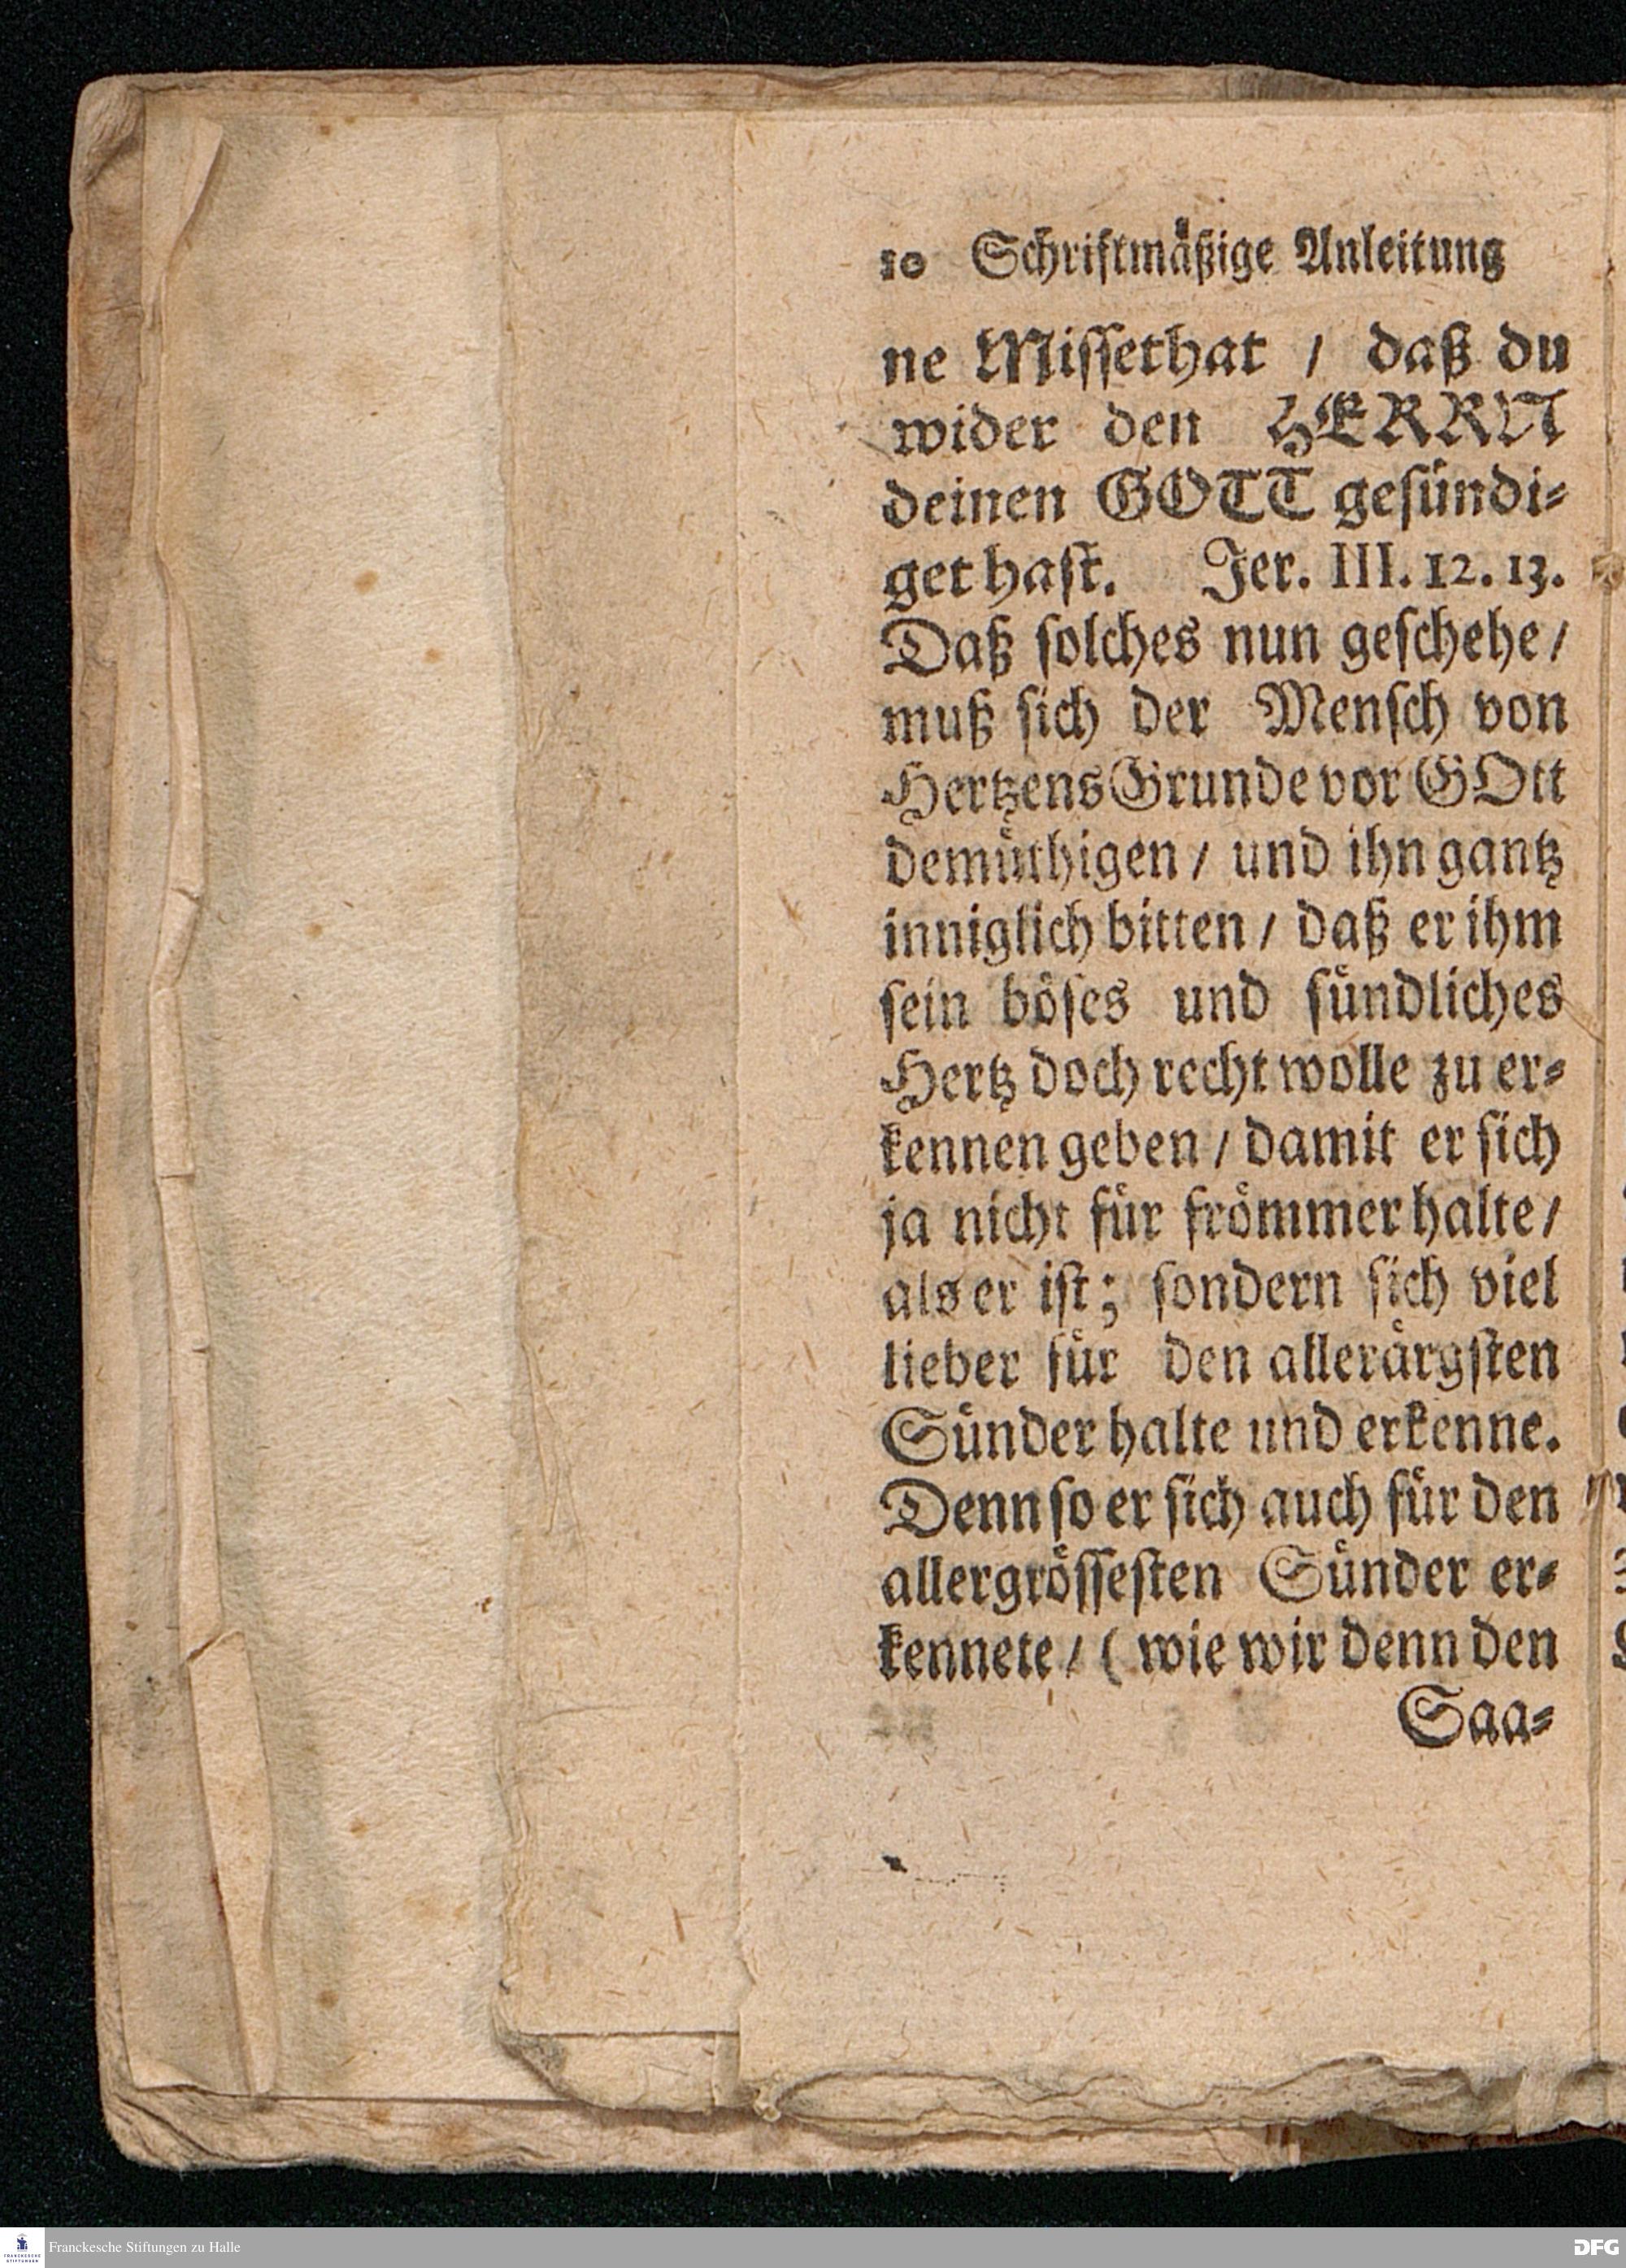 10 Schriftmäßige Anleitung
ne Missethat / daß du
wider den HERRN
deinen GOTT gesündi-
get hast. Jer. III. 12. 13.
Daß solches nun geschehe /
muß sich der Mensch von
Hertzens Grunde vor GOtt
demüthigen / und ihn gantz
inniglich bitten / daß er ihm
sein böses und sündliches
Hertz doch recht wolle zu er-
kennen geben / damit er sich
ja nicht für frömmer halte /
als er ist; sondern sich viel
lieber für den allerärgsten
Sünder halte und erkenne.
Denn so er sich auch für den
allergrössesten Sünder er-
kennete / ( wie wir denn den
Saa-
FRANCKESCHE STIFTUNGEN
Franckesche Stiftungen zu Halle
DFG